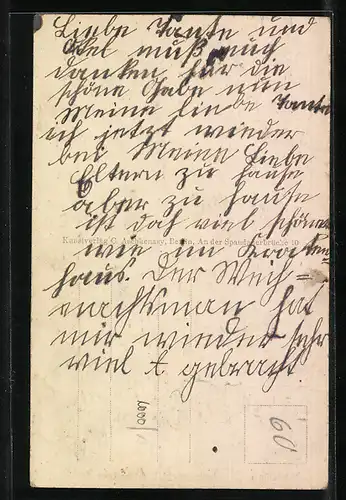 Liebe Tante und
Onkel muß euch
danken für die
schöne Gabe nun
Meine Liebe Tante
ich jetzt wieder
bei Meine Liebe
Eltern zu hause
aber zu hause
ist doch viel schöner
Kunstverlag C. Aschkenasy, Berlin, An der Spandauerbrücke 10
wie im Kranken
haus. Der Weih=
nachtsman hat
mir wieder sehr
viel gebracht
60